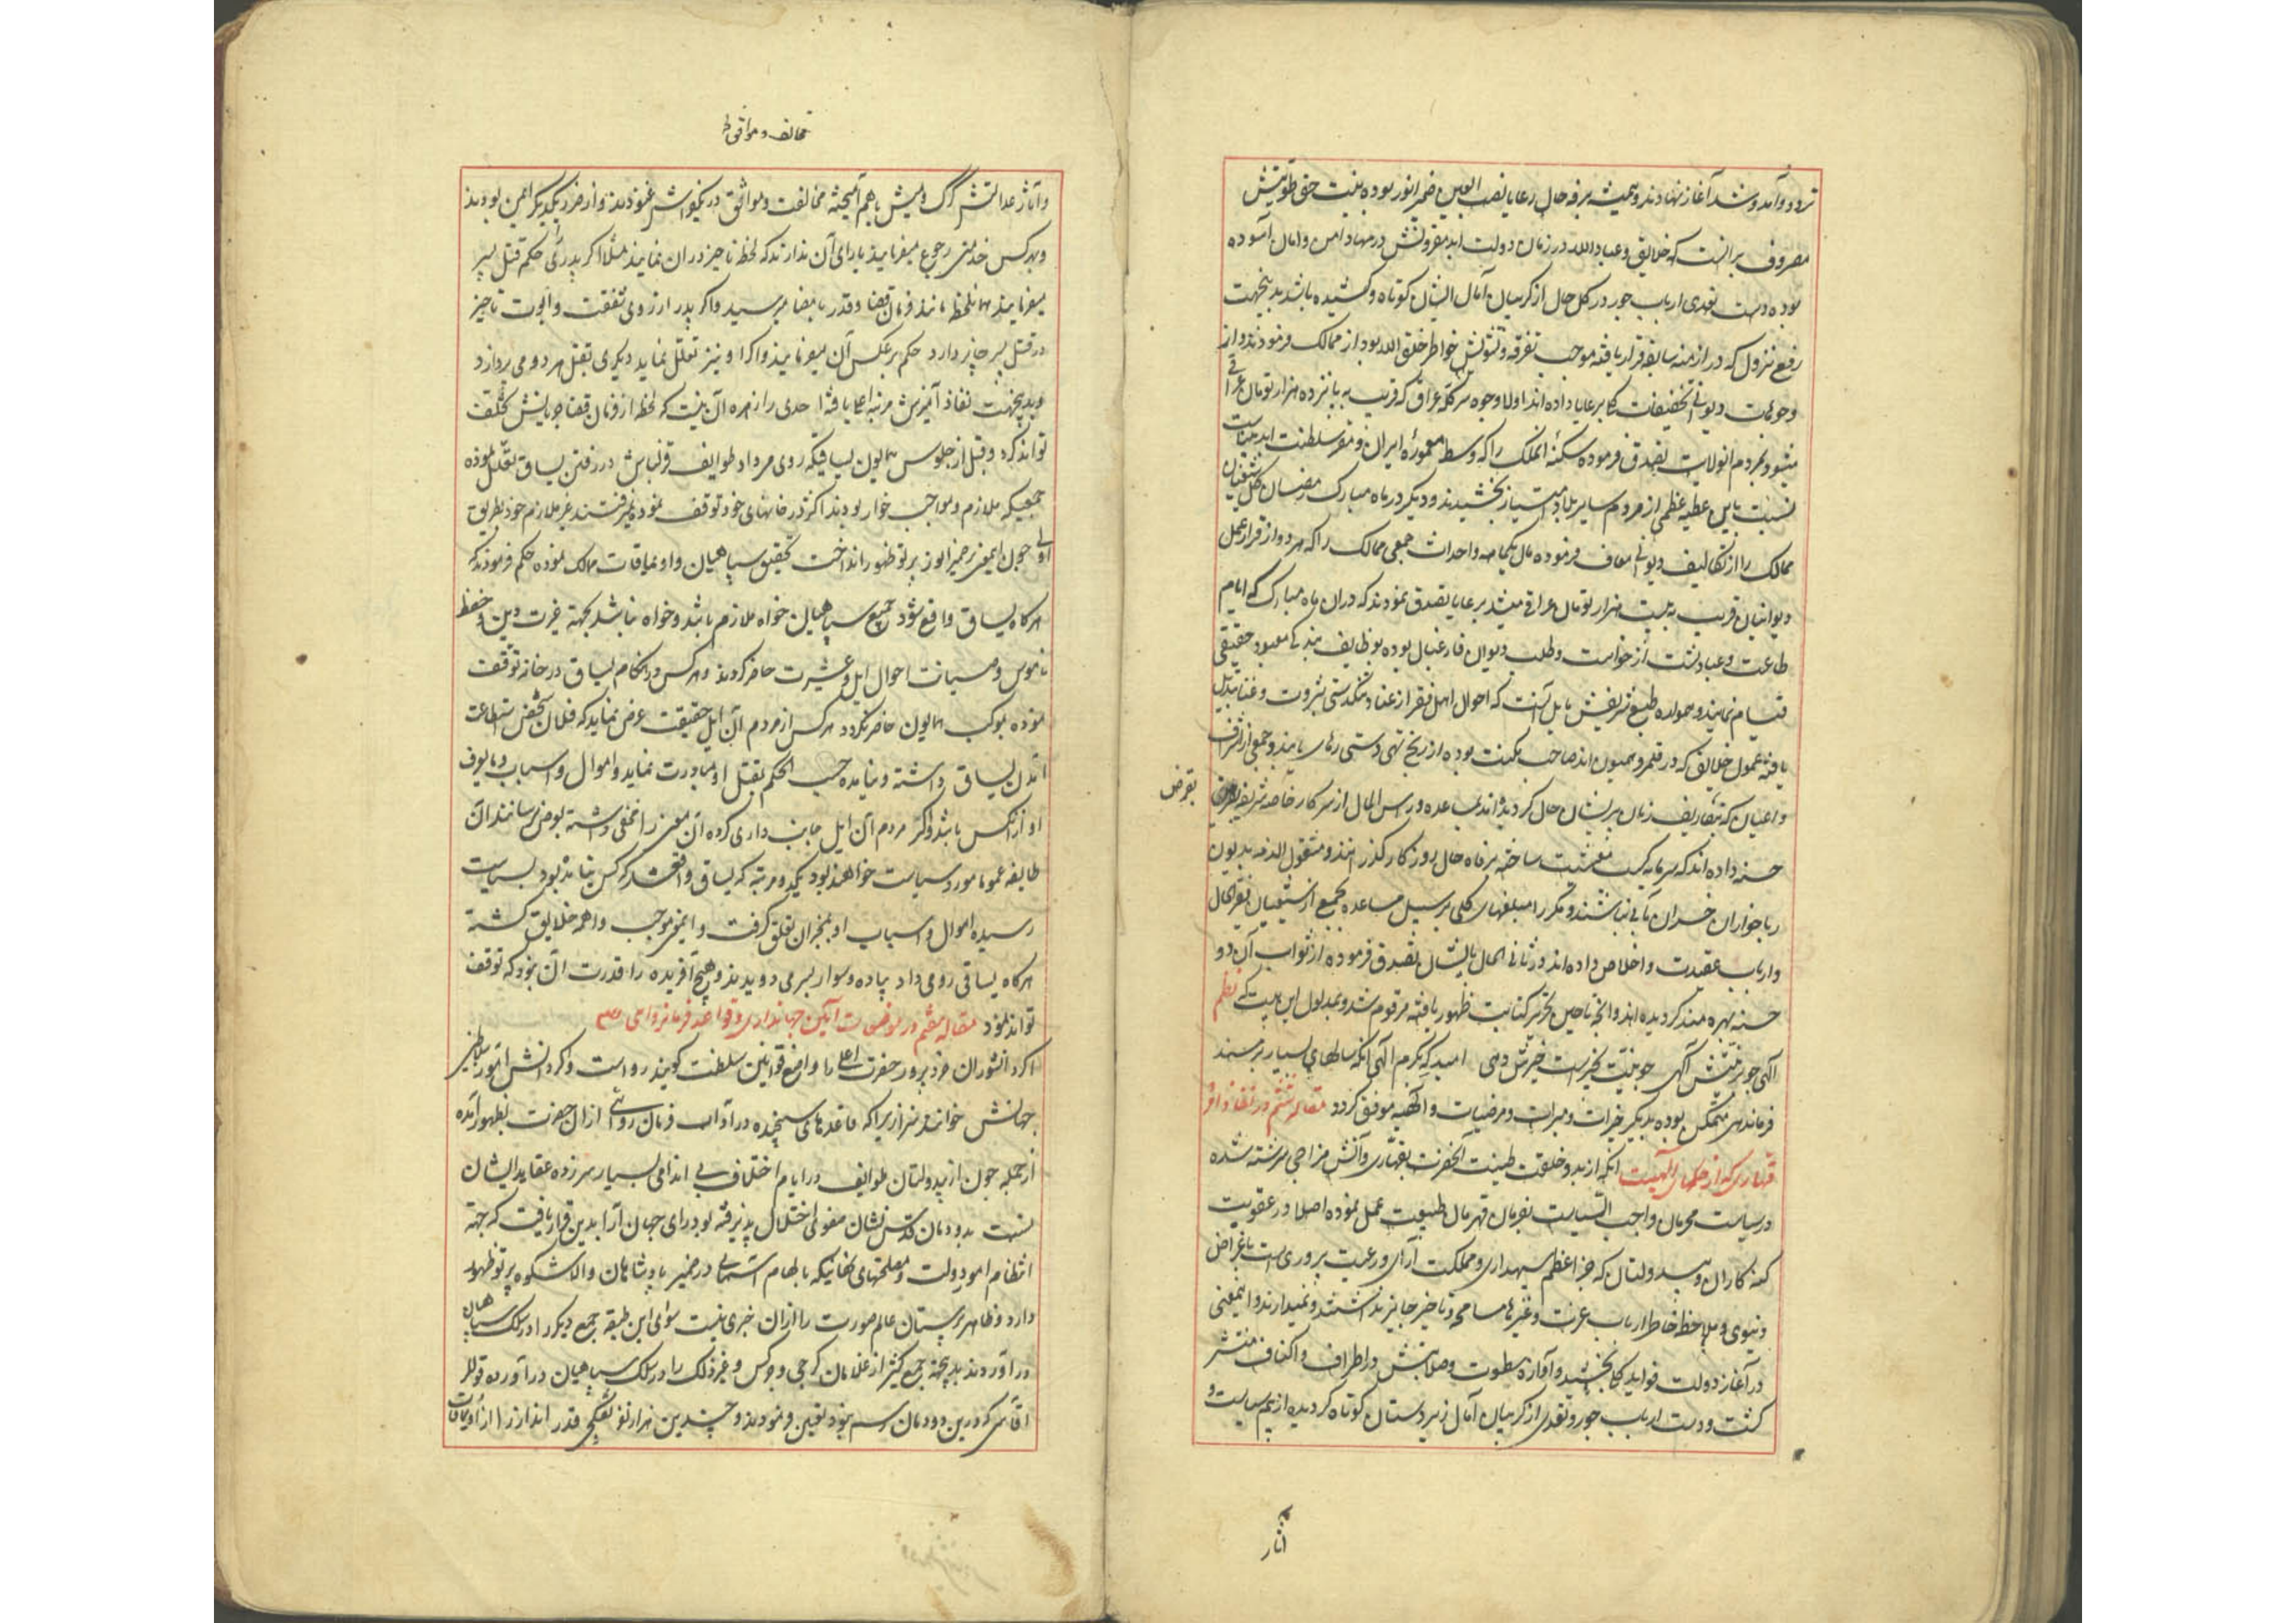 تردد و آمد و شد آغاز نهادند و همیشه ترفه حال رعایا نصب العین ضمیر انور بوده نیت حق طویتش
مصروف بر آنست که خلایق و عباد الله در زمان دولت ابد مقرونش در مهاد امن و امان آسوده
بوده دست تعدی ارباب جور در کل حال از گریبان آمال ایشان کوتاه و کشیده باشد بدینجهت
رفع نزول که در ازمنه سابقه قرار یافته موجب تفرقه و تشویش خواطر خلق الله بود از ممالک فرمودند و از
وجوهات دیوانی تخفیفات کلی برعایا داده اند اولا وجوه سرگله عراق که قریب به پانزده هزار تومان عراقی
میشود بمردم آنولایت بتصدق فرموده سکنه آنملک را که وسط معموره ایران و مقر سلطنت ابد بنیانست
نسبت باین عطیه عظمی از مردم سایر بلاد امتیاز بخشیدند و دیگر در ماه مبارک رمضان کل شیعیان
ممالک را از تکالیف دیوانی معاف فرموده مال یکماهه و احداث جمعی ممالک را که هر دو از قرار عمل
دیوانیان قریب به بیست هزار تومان عراقی میشد برعایا بتصدق نمودند که در آن ماه مبارک که ایام
طاعت و عبادتست از خواست و طلب دیوان فارغبال بوده بوظایف بندگی معبود حقیقی
قیام نمایند و همواره طبع شریفش مایل آنست که احوال اهل فقر از عنا و تنگدستی بثروت و غنا تبدیل
یافته عموم خلایق که در قلمرو همیون اند صاحب مکنت بوده از رنج تهی دستی رهایی یابند و جمعی از اشراف
و اعیان که بتصاریف زمان پریشان حال گردیده اند بمساعده و راس المال از سرکار خاصه شریفه
بقرض
حسنه داده اند که سرمایه کسب معیشت ساخته برفاه حال روزگار گذرانند و مشغول الذمه بدیون
رباخواران خسران مآبی نباشند و مکررا مبلغهای کلی برسبیل مساعده بجمیع از شیعیان فقیر الحال
و ارباب عقیدت و اخلاص داده اند و ثانی الحال بایشان تصدق فرموده از ثواب آن دو
حسنه بهره مند گردیده اند و آنچه تا حین تحریر کتابت ظهور یافته مرقوم شد و بمدلول این بیت که نظم
آلهی چو بر نیتش آگهی چو نیت بخیرست خیرش دهی امید که بکرم الهی آنکه سالهای بسیار بر مسند
فرماندهی متمکن بوده بدیگر خیرات و مبرات و مرضیات و الهیه موفق گردد مقاله ششم در نفاذ امر
قهاری که از خصال الهیست آنکه از بدو خلقت طینت آنحضرت بقهاری و آتش مزاجی سرشته شده
در سیاست مجرمان واجب السیاست بفرمان قهرمان طبیعت عمل نموده اصلا در عقوبت
گنه کاران و بیدولتان که جزء اعظم سپهداری و مملکت آرایی و رعیت پروری است باغراض
دنیوی و ملاحظه خاطر ارباب عزت و غیرها مسامحه و تاخیر جایز نداشتند و نمیدارند و اینمعنی
در آغاز دولت فواید کلی بخشید و آوازه سطوت و صلابتش در اطراف و اکناف منتشر
گشت و دست ارباب جور و تعدی از گریبان آمال زیردستان کوتاه گردیده از بیم سیاست و
آثار
مخالف و موافق
و آثار عدالتش گرگ و میش با هم آمیخته مخالفت و موافق در یکجا غنودند و از ضرر یکدیگر ایمن بودند
و بهر کس خدمتی رجوع میفرمایند یارای آن ندارند که لحظه تاخیر در آن نمایند مثلا اگر پدر را حکم قتل پسر
میفرمایند همان لحظه مانند فرمان قضا و قدر بامضا میرسید و اگر پدر از روی شفقت و ابوت تاخیر
در قتل پسر جایز دارد حکم بر عکس آن میفرمایند و اگر او نیز تعلل نماید دیگری بقتل هر دو می پردازد
و بدینجهت نفاذ امرش مرتبه اعلا یافته احدی را زهره آن نیست که لحظه از فرمان قضا جریانش تخلف
تواند کرد و قبل از جلوس همایون یساقیکه روی میداد طوایف قزلباش در رفتن یساق تعلل نموده
جمعیکه ملازم و مواجب خوار بودند اکثر در خانهای خود توقف نموده نمیرفتند غیر ملازم خود بطریق
اولی چون اینمعنی بر ضمیر انور پرتو ظهور انداخت تحقیق سپاهیان و اویماقات ممالک نموده حکم فرمودند که
هرگاه یساق واقع شود جمیع سپاهیان خواه ملازم باشد و خواه نباشد بجهة غیرت دین و حفظ
ناموس و صیانت احوال ایل و عشیرت حاضر گردند و هر کس در هنگام یساق در خانه توقف
نموده بموکب همایون حاضر نگردد هر کس از مردم آن ایل حقیقت عرض نماید که فلان شخص استطاعت
آمدن یساق داشته و نیامده حسب الحکم بقتل او مبادرت نماید و اموال و اسباب و مایعرف
او از آنکس باشد و اگر مردم آن ایل جانب داری کرده آن معنی را مخفی داشته بعرض نرسانند آن
طایفه عموما مورد سیاست خواهند بود یکدو مرتبه که یساق واقع شد کس نیامده بود بسیاست
رسیده اموال و اسباب او بمخبران تعلق گرفت و اینمعنی موجب واهمه خلایق گشته
هرگاه یساقی رو می داد پیاده و سوار بسر می دویدند و هیچ آفریده را قدرت آن نبود که توقف
تواند نمود مقاله هفتم در موضوعات آیین جهانداری و قواعد فرمانروایی
اگر دانشوران خرد پرور حضرت اعلی را واضع قوانین سلطنت گویند رواست و گر دانش آموز سلاطین
جهانش خوانند سزا زیرا که قاعدهای سنجیده در آداب فرمان روایی از آن حضرت بظهور آمده
از جمله چون از بیدولتان طوایف در ایام اختلاف بی اندامی بسیار سرزده عقاید ایشان
نسبت بدودمان قدس نشان صفوی اختلال پذیرفته بود رای جهان آرا بدین قرار یافت که جهة
انتظام امور دولت و مصلحتهای نهانیکه بالهام آسمانی در ضمیر پادشاهان والاشکوه پرتو ظهور
دارد و ظاهر پرستان عالم صورت را از آن خبری نیست سوای این طبقه جمع دیگر را در سلک سپاهیان
درآوردند بدینجهة جمع کثیر از غلامان گرجی و چرکس و غیر ذلک را در سلک سپاهیان درآورده قوللر
آقاسی که درین دودمان رسم نبود تعیین فرمودند و چندین هزار نفر تفنگچی قدر انداز را از اویماقات